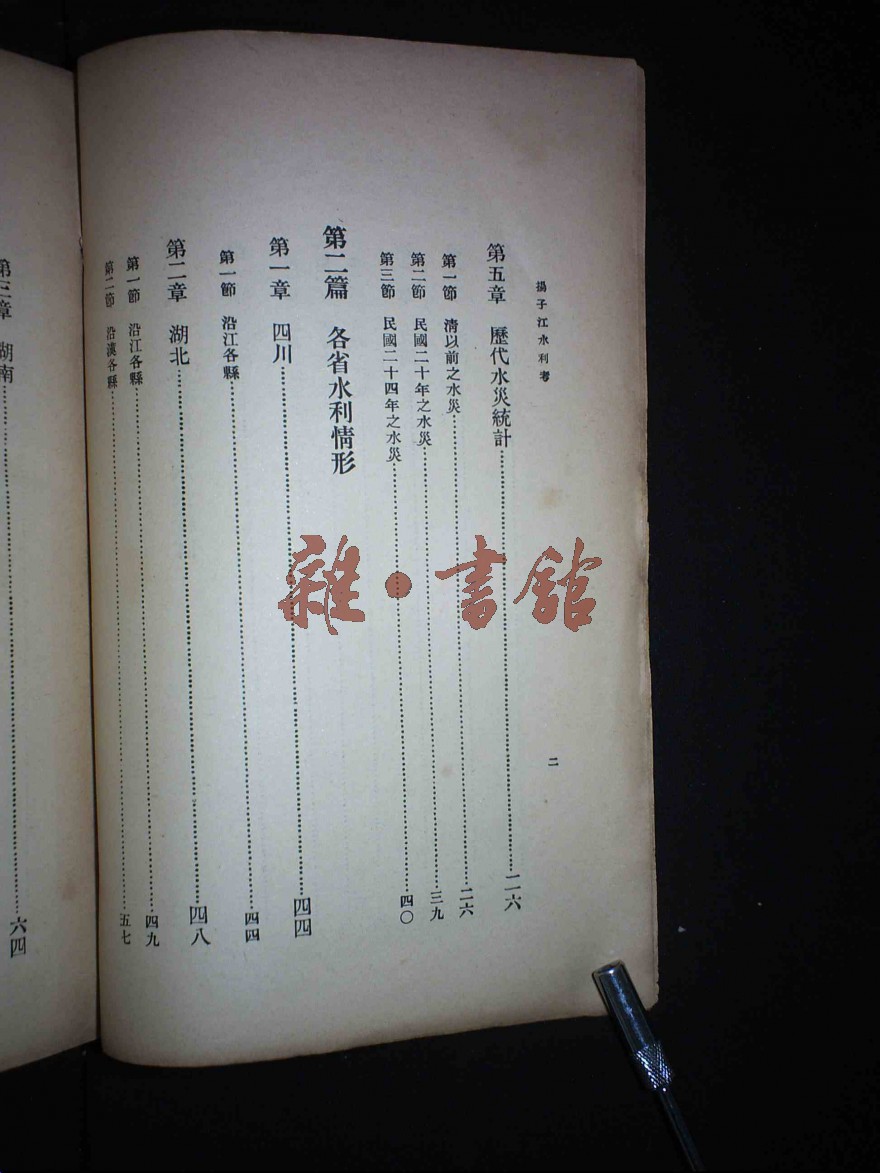 揚子江水利考
二
第五章 歷代水災統計 二六
第一節 清以前之水災 二六
第二節 民國二十年之水災 三九
第三節 民國二十四年之水災 四〇
第二篇 各省水利情形
第一章 四川 四四
第一節 沿江各縣 四四
第二章 湖北 四八
第一節 沿江各縣 四九
第二節 沿漢各縣 五七
第三章 湖南 六四
雜·書館